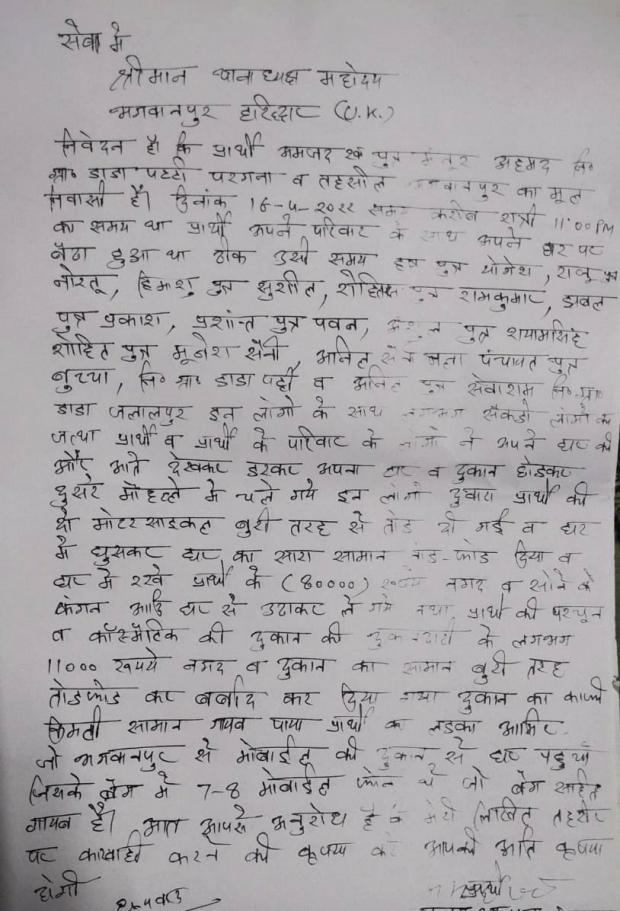 सेवा मे
श्रीमान थानाध्यक्ष महोदय
भगवानपुर हरिद्वार (U.K.)
निवेदन है कि प्रार्थी अमजद पुत्र अहमद नि०
ग्रा० डाडा पट्टी परगना व तहसील भगवानपुर का मूल
निवासी है। दिनांक 16-4-2022 समय करीब रात्री 11:00 PM
का समय था प्रार्थी अपने परिवार के साथ अपने घर पर
बैठा हुआ था ठीक उसी समय पुत्र योगेश, राजू पुत्र
, हिमांशु पुत्र सुशील, पुत्र रामकुमार,
पुत्र प्रकाश, प्रशांत पुत्र पवन, पुत्र श्यामसिंह
रोहित पुत्र सैनी, अनित पंचायत पुत्र
नि० ग्रा० डाडा पट्टी व अनित पुत्र सेवाराम नि० ग्रा०
डाडा जलालपुर इन लोगो के साथ लगभग सैकडो लोगो का
जत्था प्रार्थी व प्रार्थी के परिवार के लोगो ने अपने घर की
और आते देखकर डरकर अपना घर व दुकान छोडकर
दुसरे मोहल्ले मे चले गये इन लोगो दुवारा प्रार्थी की
दो मोटर साइकल बुरी तरह से तोड दी गई व घर
मे घुसकर घर का सारा सामान तोड-फोड दिया व
घर मे रखे प्रार्थी के (80000) रुपये नगद व सोने के
कंगन आदि घर से उठाकर ले गये तथा प्रार्थी की परचून
व कॉस्मैटिक की दुकान की दुकानदारी के लगभग
11000 रूपये नगद व दुकान का सामान बुरी तरह
तोडफोड कर बर्बाद कर दिया गया दुकान का काफी
किमती सामान गायब पाया प्रार्थी का लडका
जो भगवानपुर से मोबाईल की दुकान से घर पहुचा
जिसके बेग मे 7-8 मोबाईल फोन थे जो बेग सहित
गायब है। आपसे अनुरोध है कि मेरी लिखित तहरीर
पर कारवाही करने की कृपया करे आपकी अति कृपया
होगी
धन्यवाद